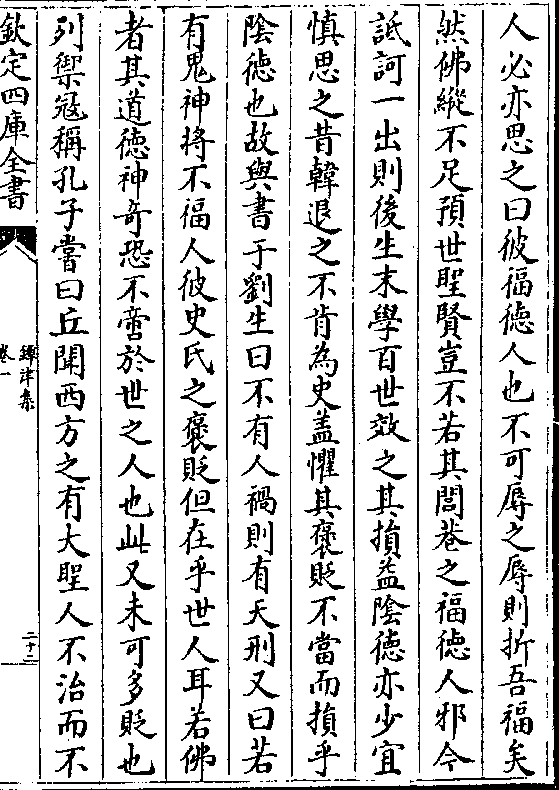 人必亦思之曰彼福徳人也不可辱之辱則折吾福矣
然佛縱不足預世聖賢豈不若其閭巷之福徳人邪今
詆訶一出則後生末學百世效之其損益陰徳亦少宜
慎思之昔韓退之不肯為史蓋懼其褒貶不當而損乎
陰徳也故與書于劉生曰不有人禍則有天刑又曰若
有鬼神將不福人彼史氏之褒貶但在乎世人耳若佛
者其道徳神竒恐不啻於世之人也此又未可多貶也
列禦冦稱孔子嘗曰丘聞西方之有大聖人不治而不
欽定四庫全書
鐔津集
卷一
二十二